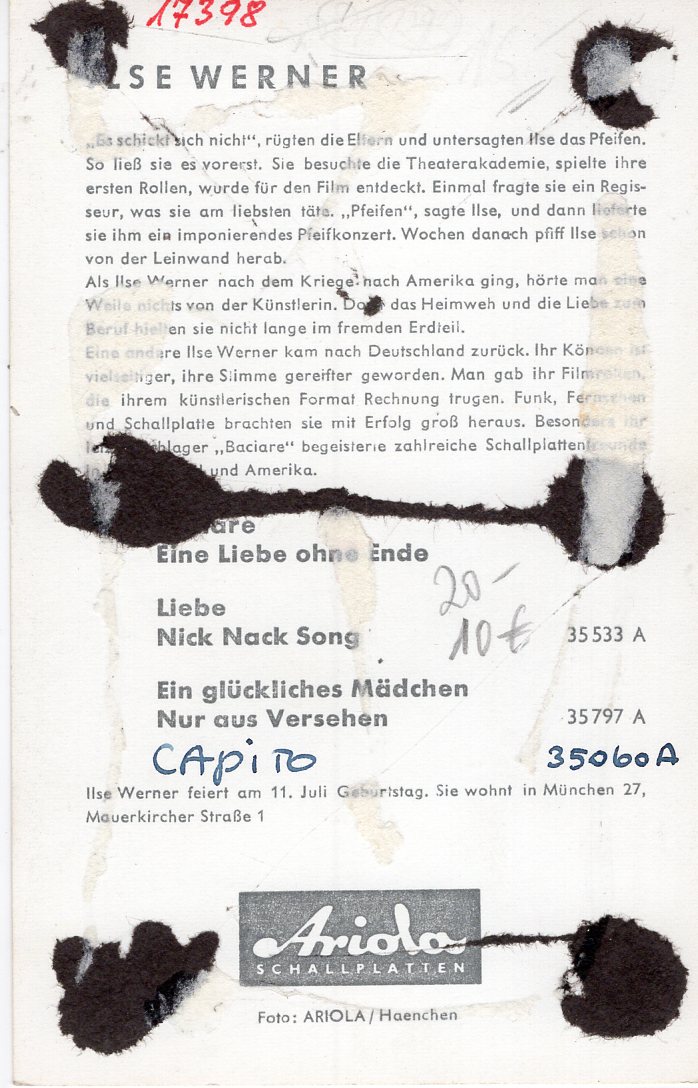 17398
ILSE WERNER
„Es schickt sich nicht“, rügten die Eltern und untersagten Ilse das Pfeifen.
So ließ sie es vorerst. Sie besuchte die Theaterakademie, spielte ihre
ersten Rollen, wurde für den Film entdeckt. Einmal fragte sie ein Regis-
seur, was sie am liebsten täte. „Pfeifen“, sagte Ilse, und dann lieferte
sie ihm ein imponierendes Pfeifkonzert. Wochen danach pfiff Ilse schon
von der Leinwand herab.
Als Ilse Werner nach dem Kriege nach Amerika ging, hörte man eine
Weile nichts von der Künstlerin. Doch das Heimweh und die Liebe zum
Beruf hielten sie nicht lange im fremden Erdteil.
Eine andere Ilse Werner kam nach Deutschland zurück. Ihr Können ist
vielseitiger, ihre Stimme gereifter geworden. Man gab ihr Filmrollen,
die ihrem künstlerischen Format Rechnung trugen. Funk, Fernsehen
und Schallplatte brachten sie mit Erfolg groß heraus. Besonders ihr
„Baciare“ begeisterte zahlreiche Schallplattenfreunde
und Amerika.
Eine Liebe ohne Ende
20-
Liebe
Nick Nack Song 35533 A
10 €
Ein glückliches Mädchen
Nur aus Versehen 35797 A
CAPITO 35060A
Ilse Werner feiert am 11. Juli Geburtstag. Sie wohnt in München 27,
Mauerkircher Straße 1
Ariola
SCHALLPLATTEN
Foto: ARIOLA/Haenchen